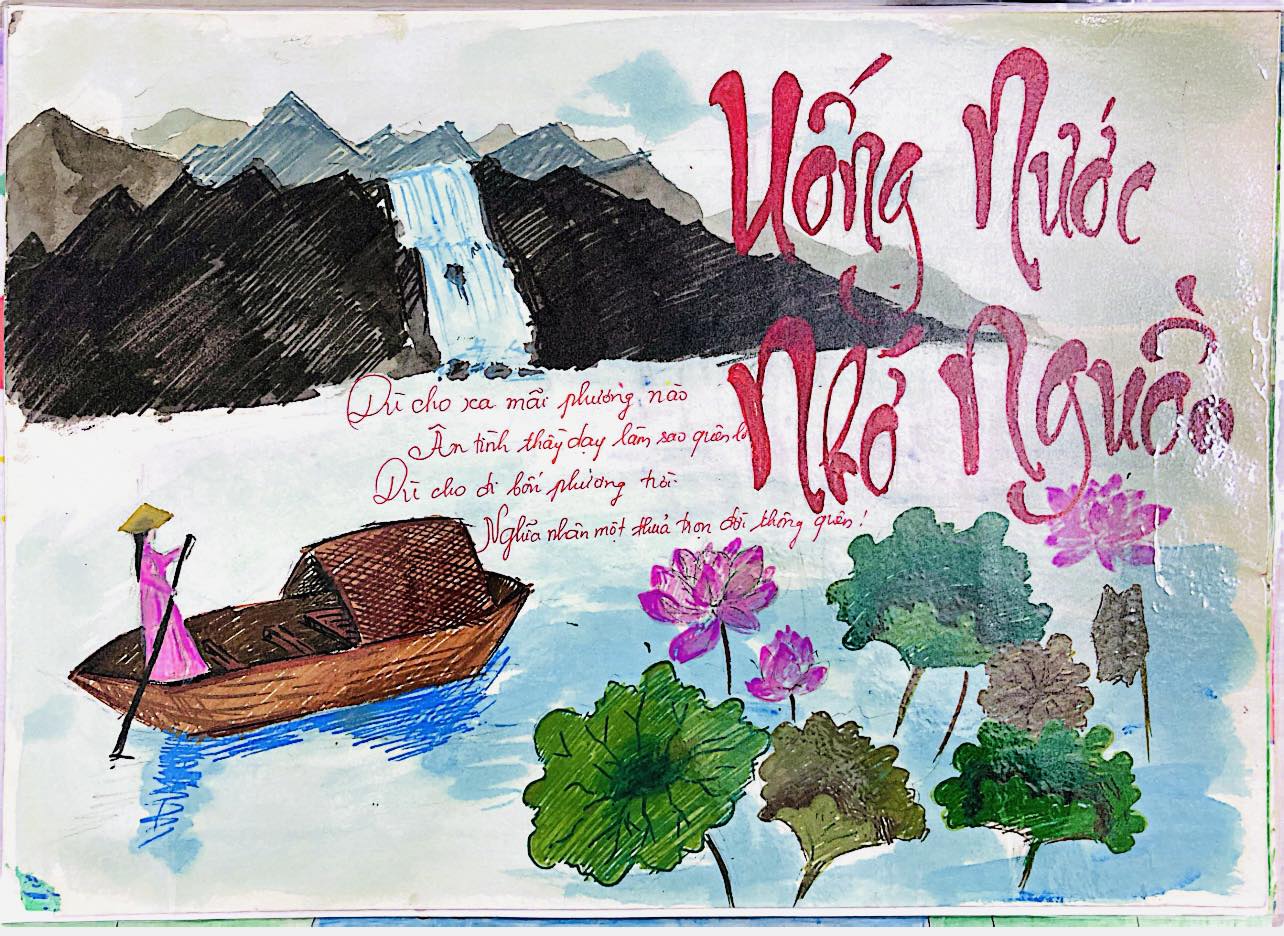 Uống Nước
Nhớ Nguồn
Dù cho xa mãi phương nào
Ân tình thầy dạy làm sao quên
Dù cho đi bốn phương trời
Nghĩa nhân một thuở trọn đời không quên!